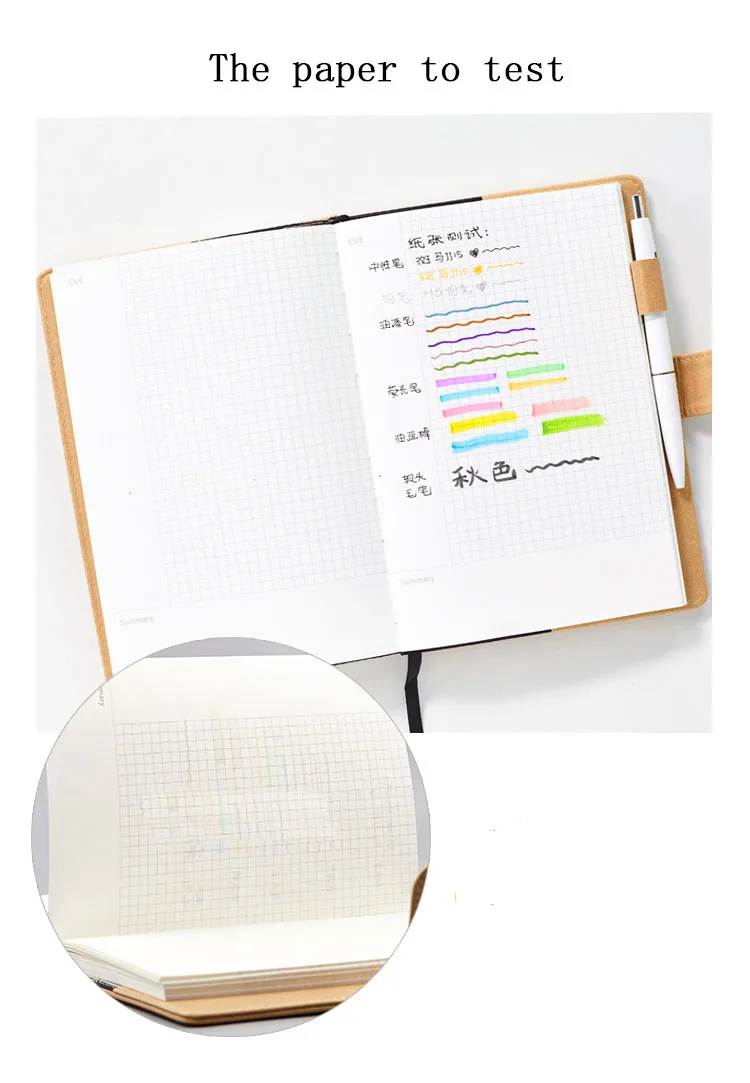 The paper to test
CUE
CUE
纸张测试:
中性笔 斑马JJ15
斑马JJ15
铅笔 HB铅笔
油漆笔
荧光笔
油画棒
软头
毛笔
秋色
Summary
Summary